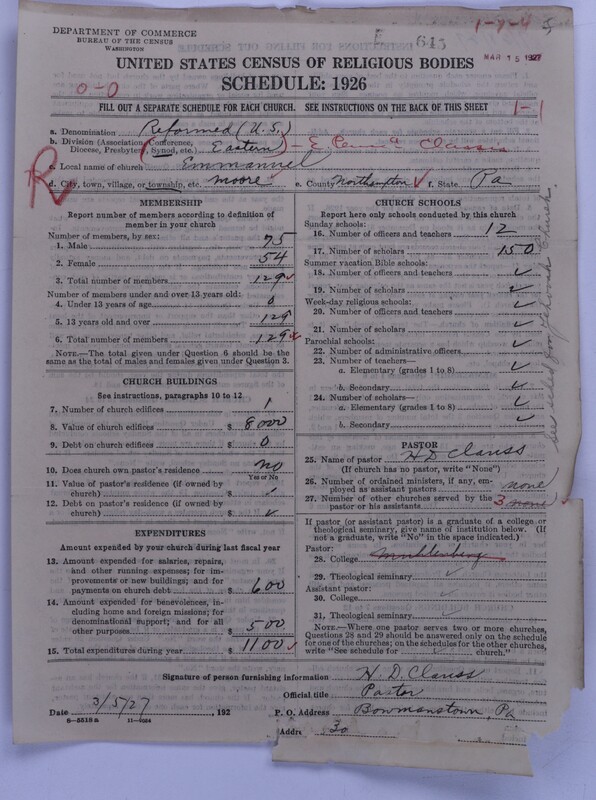 1-7-4
DEPARTMENT OF COMMERCE
BUREAU OF THE CENSUS
WASHINGTON
643
MAR 15 1927
UNITED STATES CENSUS OF RELIGIOUS BODIES
SCHEDULE: 1926
0-0
FILL OUT A SEPARATE SCHEDULE FOR EACH CHURCH. SEE INSTRUCTIONS ON THE BACK OF THIS SHEET
1-1
a. Denomination Reformed (U.S.)
b. Division (Association, Conference, Diocese, Presbytery, Synod, etc.) Eastern - E Penna Classis
c. Local name of church Emmanuel
R
d. City, town, village, or township, etc. Moore e. County Northampton f. State Pa
MEMBERSHIP
Report number of members according to definition of
member in your church
Number of members, by sex:
1. Male 75
2. Female 54
3. Total number of members 129
Number of members under and over 13 years old:
4. Under 13 years of age 0
5. 13 years old and over 129
6. Total number of members 129
NOTE.—The total given under Question 6 should be the
same as the total of males and females given under Question 3.
CHURCH BUILDINGS
See instructions, paragraphs 10 to 12
7. Number of church edifices 1
8. Value of church edifices $ 8000
9. Debt on church edifices $ 0
10. Does church own pastor's residence? no
Yes or No
11. Value of pastor's residence (if owned by
church) $
12. Debt on pastor's residence (if owned by
church) $
EXPENDITURES
Amount expended by your church during last fiscal year
13. Amount expended for salaries, repairs,
and other running expenses; for im-
provements or new buildings; and for
payments on church debt $ 600
14. Amount expended for benevolences, in-
cluding home and foreign missions; for
denominational support; and for all
other purposes $ 500
15. Total expenditures during year $ 1100
CHURCH SCHOOLS
Report here only schools conducted by this church
Sunday schools:
16. Number of officers and teachers 12
17. Number of scholars 150
Summer vacation Bible schools:
18. Number of officers and teachers
19. Number of scholars
Week-day religious schools:
20. Number of officers and teachers
21. Number of scholars
Parochial schools:
22. Number of administrative officers
23. Number of teachers—
a. Elementary (grades 1 to 8)
b. Secondary
24. Number of scholars—
a. Elementary (grades 1 to 8)
b. Secondary
PASTOR
25. Name of pastor H D Clauss
(If church has no pastor, write "None")
26. Number of ordained ministers, if any, em-
ployed as assistant pastors none
27. Number of other churches served by the
pastor or his assistants 3 none
If pastor (or assistant pastor) is a graduate of a college or
theological seminary, give name of institution below. (If
not a graduate, write "No" in the space indicated.)
Pastor:
28. College Muhlenberg
29. Theological seminary
Assistant pastor:
30. College
31. Theological seminary
NOTE.—Where one pastor serves two or more churches,
Questions 28 and 29 should be answered only on the schedule
for one of the churches; on the schedules for the other churches,
write "See schedule for church."
Signature of person furnishing information H. D. Clauss
Official title Pastor
Date 3/5/27, 192
P. O. Address Bowmanstown, Pa
8—5518a 11—9054
Addr 30